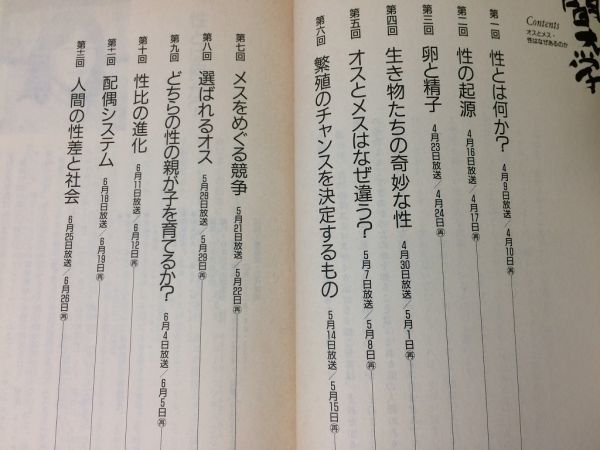 Contents
オスとメス・
性はなぜあるのか
第一回 性とは何か? 4月9日放送/4月10日㊢
第二回 性の起源 4月16日放送/4月17日㊢
第三回 卵と精子 4月23日放送/4月24日㊢
第四回 生き物たちの奇妙な性 4月30日放送/5月1日㊢
第五回 オスとメスはなぜ違う? 5月7日放送/5月8日㊢
第六回 繁殖のチャンスを決定するもの 5月14日放送/5月15日㊢
第七回 メスをめぐる競争 5月21日放送/5月22日㊢
第八回 選ばれるオス 5月28日放送/5月29日㊢
第九回 どちらの性の親が子を育てるか? 6月4日放送/6月5日㊢
第十回 性比の進化 6月11日放送/6月12日㊢
第十一回 配偶システム 6月18日放送/6月19日㊢
第十二回 人間の性差と社会 6月25日放送/6月26日㊢